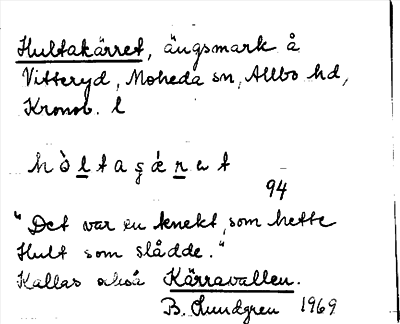 Hultakärret, ängsmark å
Vitteryd, Moheda sn, Allbo hd,
Kronob. l
hòltagǽret
94
"Det var en knekt, som hette
Hult som slådde."
Kallas också Kärravallen.
B. Lundgren 1969